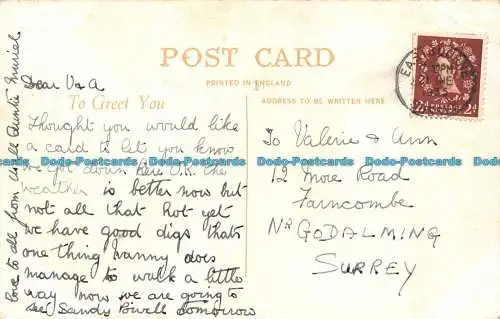 POST CARD
PRINTED IN ENGLAND
To Greet You
ADDRESS TO BE WRITTEN HERE
Dear V & A
Thought you would like
a card to let you know
we got down here O.K. the
weather is better now but
not all that hot yet
we have good digs thats
one thing nanny does
manage to walk a little
way now we are going to
see Sandy Powell tomorrow
love to all from Uncle Auntie Muriel
To Valerie & Ann
12 More Road
Farncombe
Nr GODALMING
SURREY
2d 2d
Dodo-Postcards Dodo-Postcards Dodo-Postcards Dodo-Postcards Dodo-Postcards
Dodo-Postcards Dodo-Postcards Dodo-Postcards Dodo-Postcards Dodo-Postcards